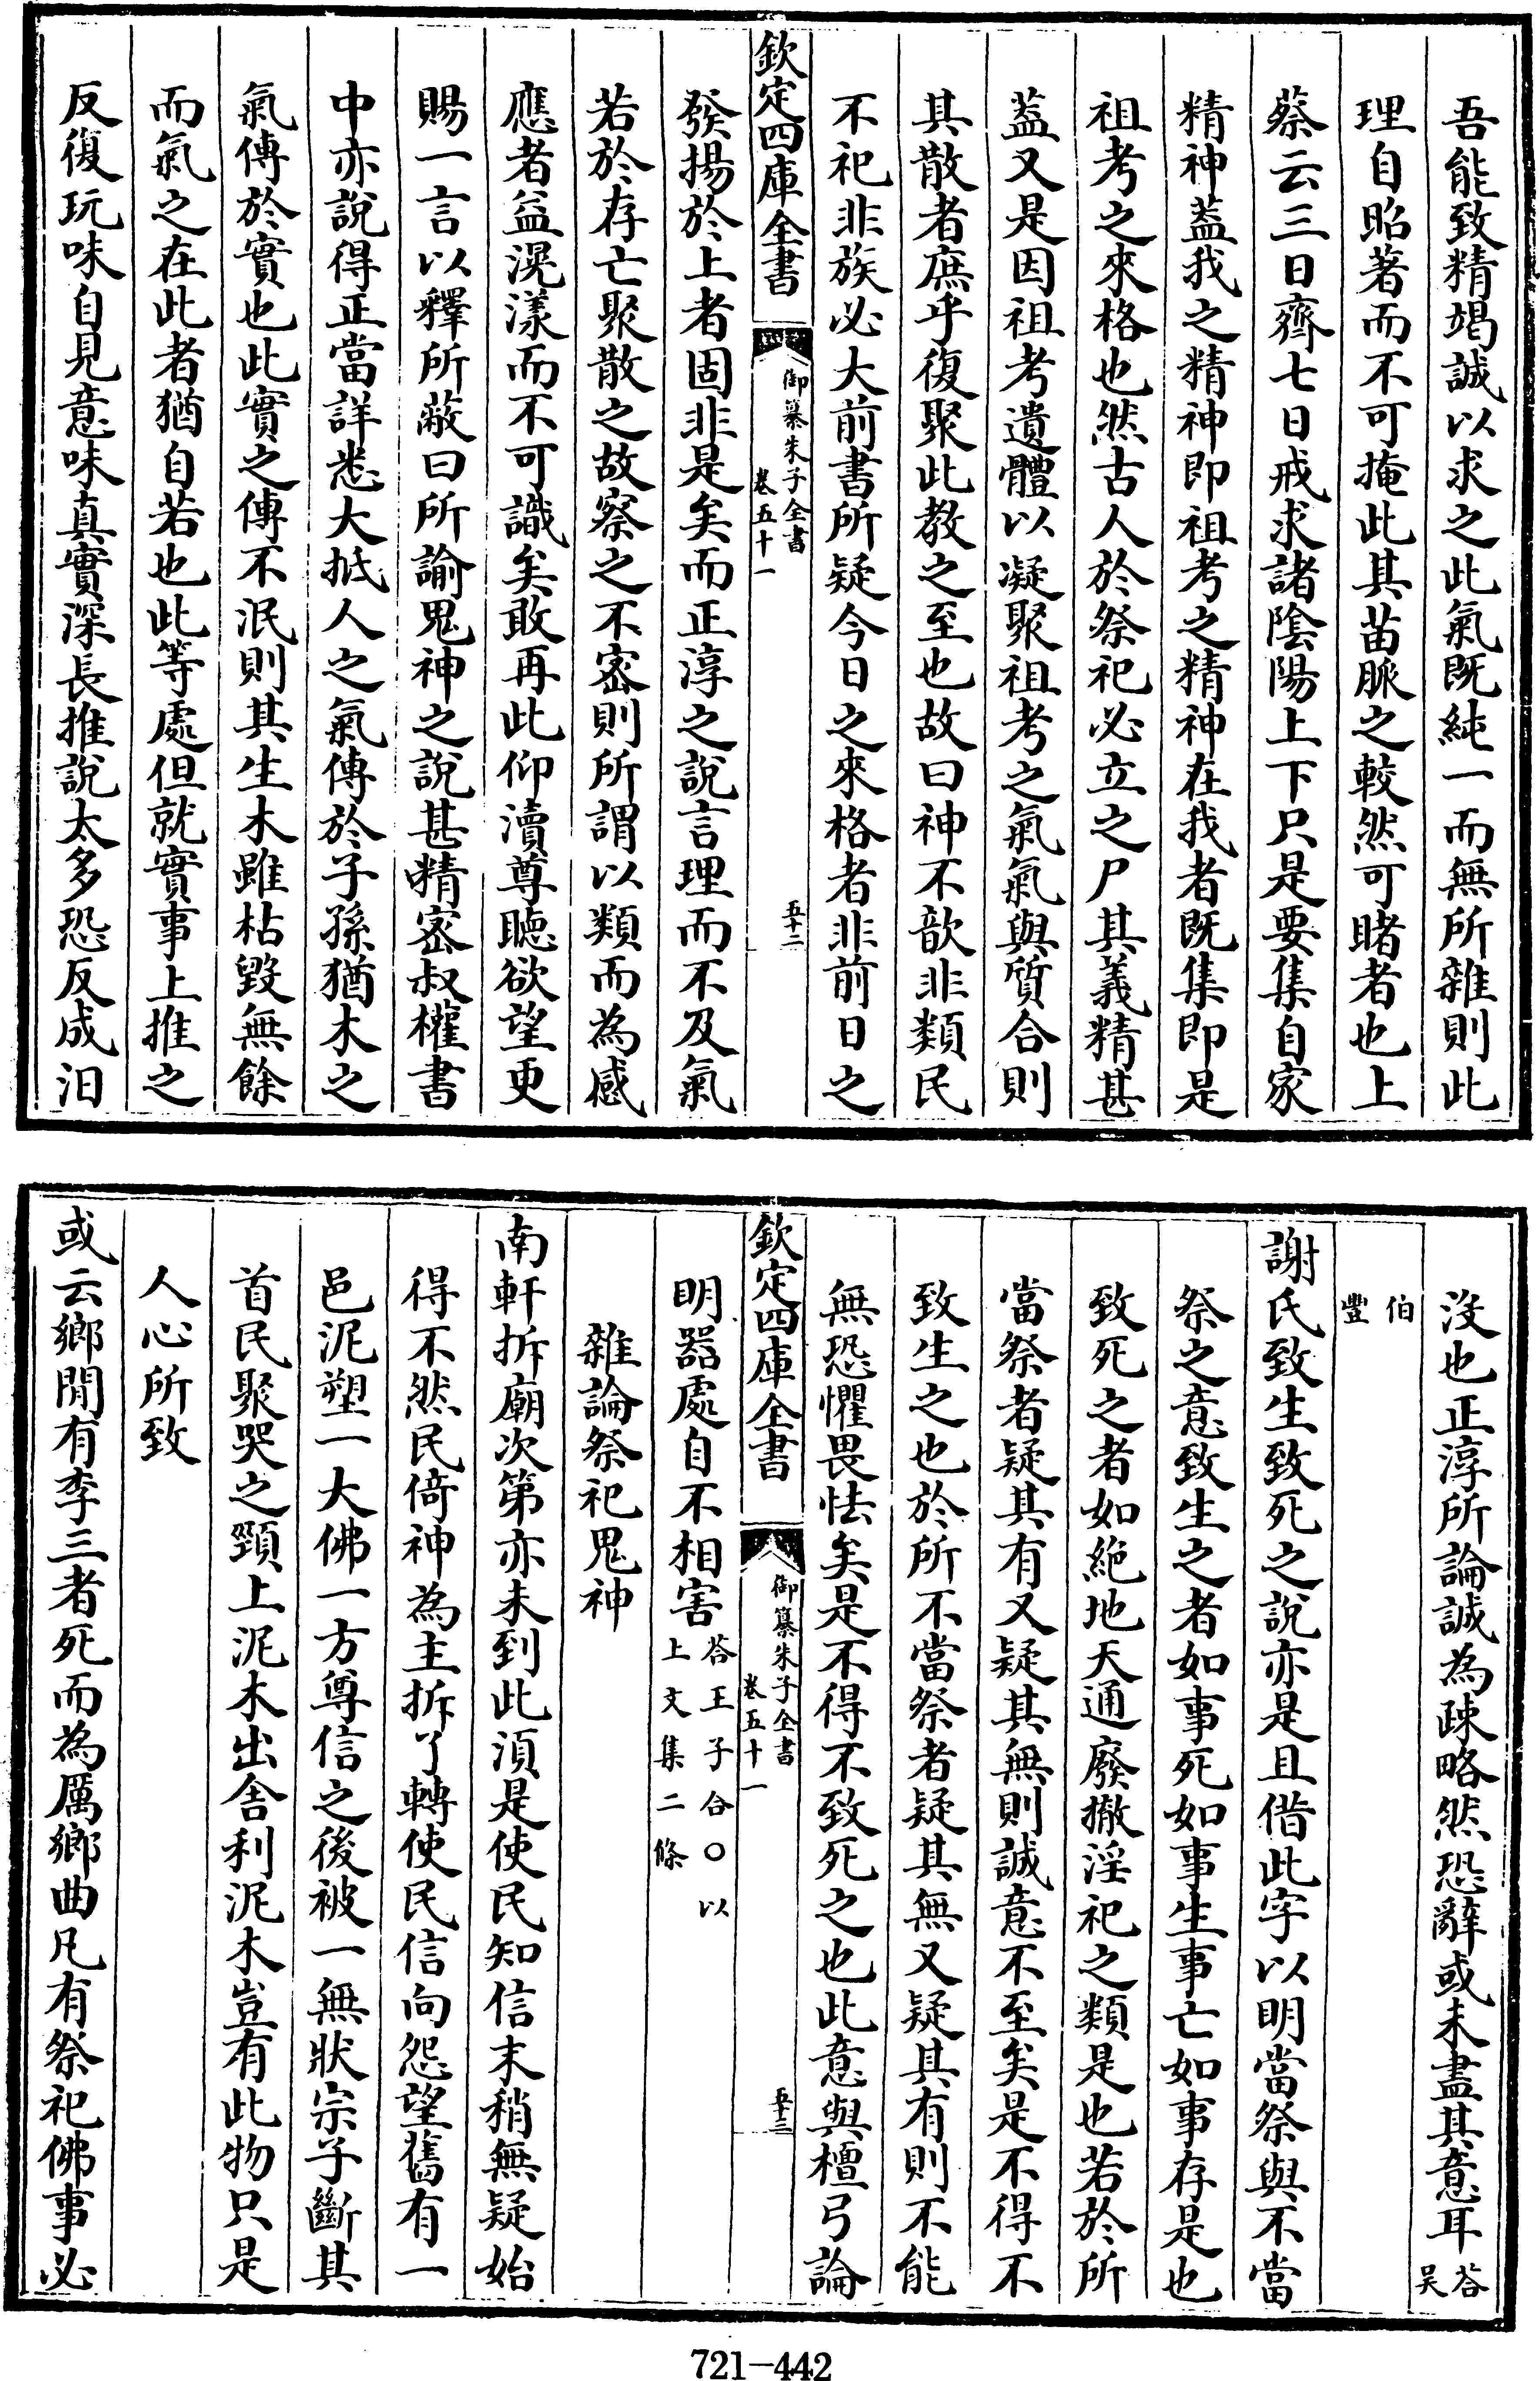 吾能致精竭誠以求之此氣既純一而無所雜則此
理自昭著而不可掩此其苗脈之較然可睹者也上
蔡云三日齊七日戒求諸陰陽上下只是要集自家
精神葢我之精神即祖考之精神在我者既集即是
祖考之來格也然古人於祭祀必立之尸其義精甚
葢又是因祖考遺體以凝聚祖考之氣氣與質合則
其散者庶乎復聚此教之至也故曰神不歆非類民
不祀非族必大前書所疑今日之來格者非前日之
欽定四庫全書
御纂朱子全書
卷五十一
五十二
發揚於上者固非是矣而正淳之說言理而不及氣
若於存亡聚散之故察之不密則所謂以類而為感
應者益滉漾而不可識矣敢再此仰瀆尊聽欲望更
賜一言以釋所蔽曰所諭鬼神之說甚精密叔權書
中亦說得正當詳悉大抵人之氣傳於子孫猶木之
氣傳於實也此實之傳不泯則其生木雖枯毀無餘
而氣之在此者猶自若也此等處但就實事上推之
反復玩味自見意味真實深長推說太多恐反成汨
沒也正淳所論誠為疎略然恐辭或未盡其意耳答吳
伯豐
謝氏致生致死之說亦是且借此字以明當祭與不當
祭之意致生之者如事死如事生事亡如事存是也
致死之者如絶地天通廢撤淫祀之類是也若於所
當祭者疑其有又疑其無則誠意不至矣是不得不
致生之也於所不當祭者疑其無又疑其有則不能
無恐懼畏怯矣是不得不致死之也此意與檀弓論
欽定四庫全書
御纂朱子全書
卷五十一
五十三
明器處自不相害答王子合○以上文集二條
雜論祭祀鬼神
南軒拆廟次第亦未到此須是使民知信末稍無疑始
得不然民倚神為主拆了轉使民信向怨望舊有一
邑泥塑一大佛一方尊信之後被一無狀宗子斷其
首民聚哭之頸上泥木出舍利泥木豈有此物只是
人心所致
或云鄉閒有李三者死而為厲鄉曲凡有祭祀佛事必
721-442